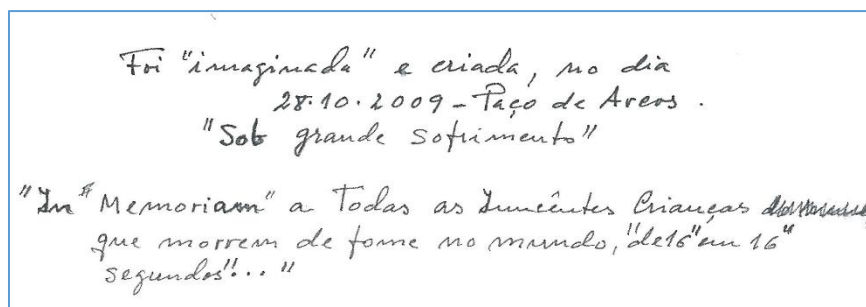 Foi "imaginada" e criada, no dia
28.10.2009 - Paço de Arcos.
"Sob grande sofrimento"
"In "Memoriam" a Todas as Inncêntes Crianças
que morrem de fome no mundo, "de 16" em 16"
segundos"... "